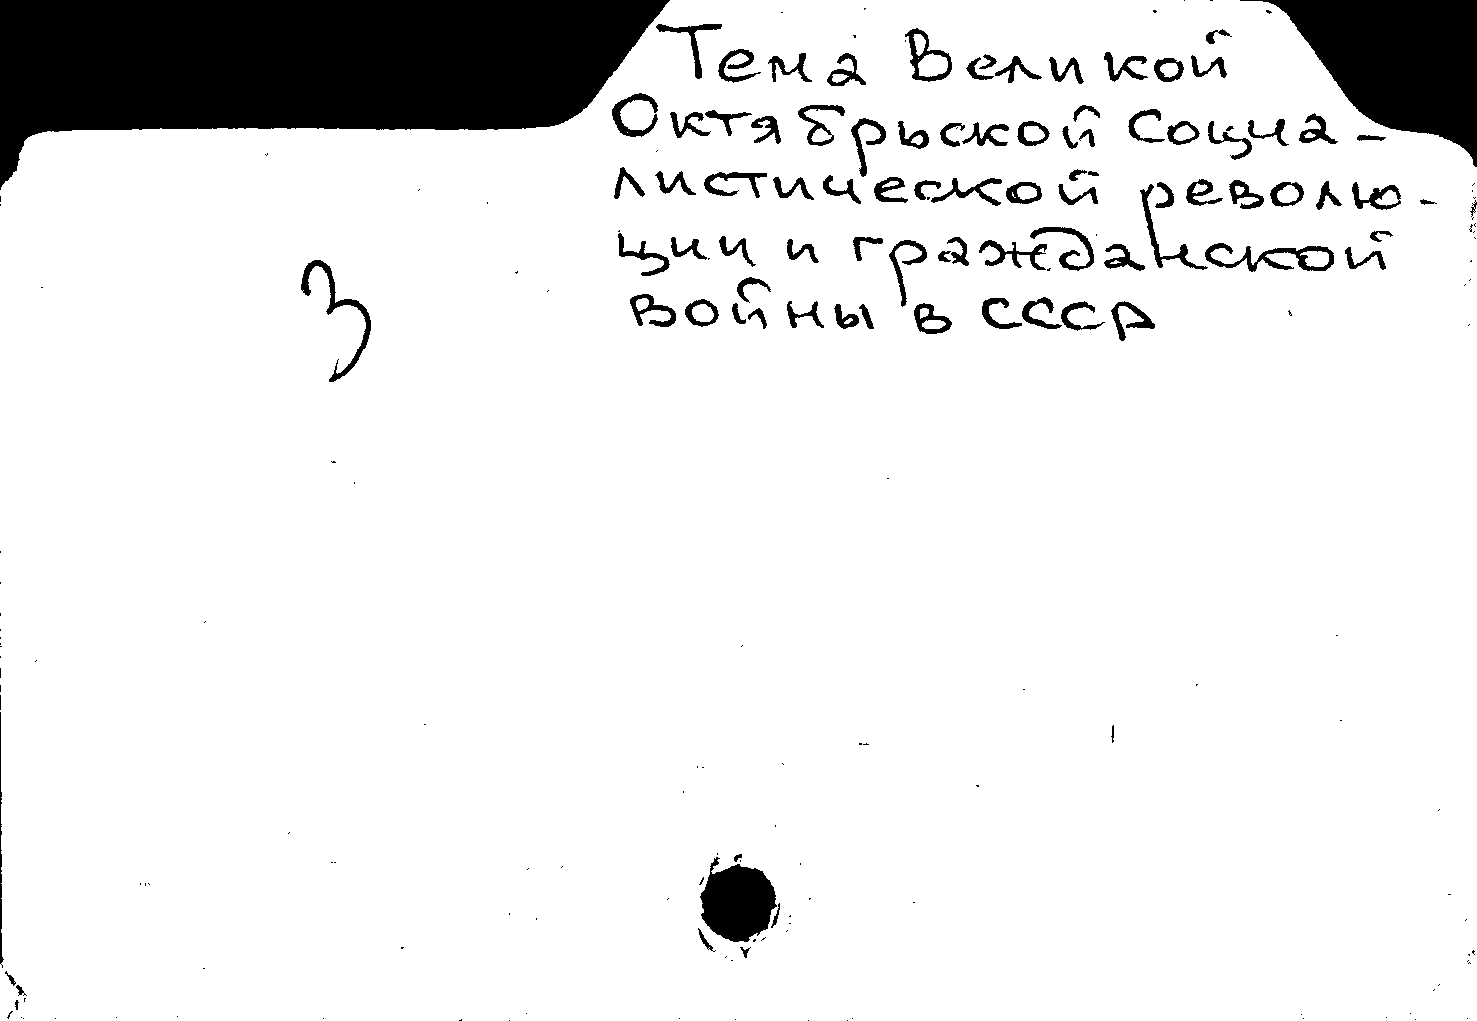 Тема Великой
Октябрьской социа-
листической револю-
ции и гражданской
войны в СССР
3